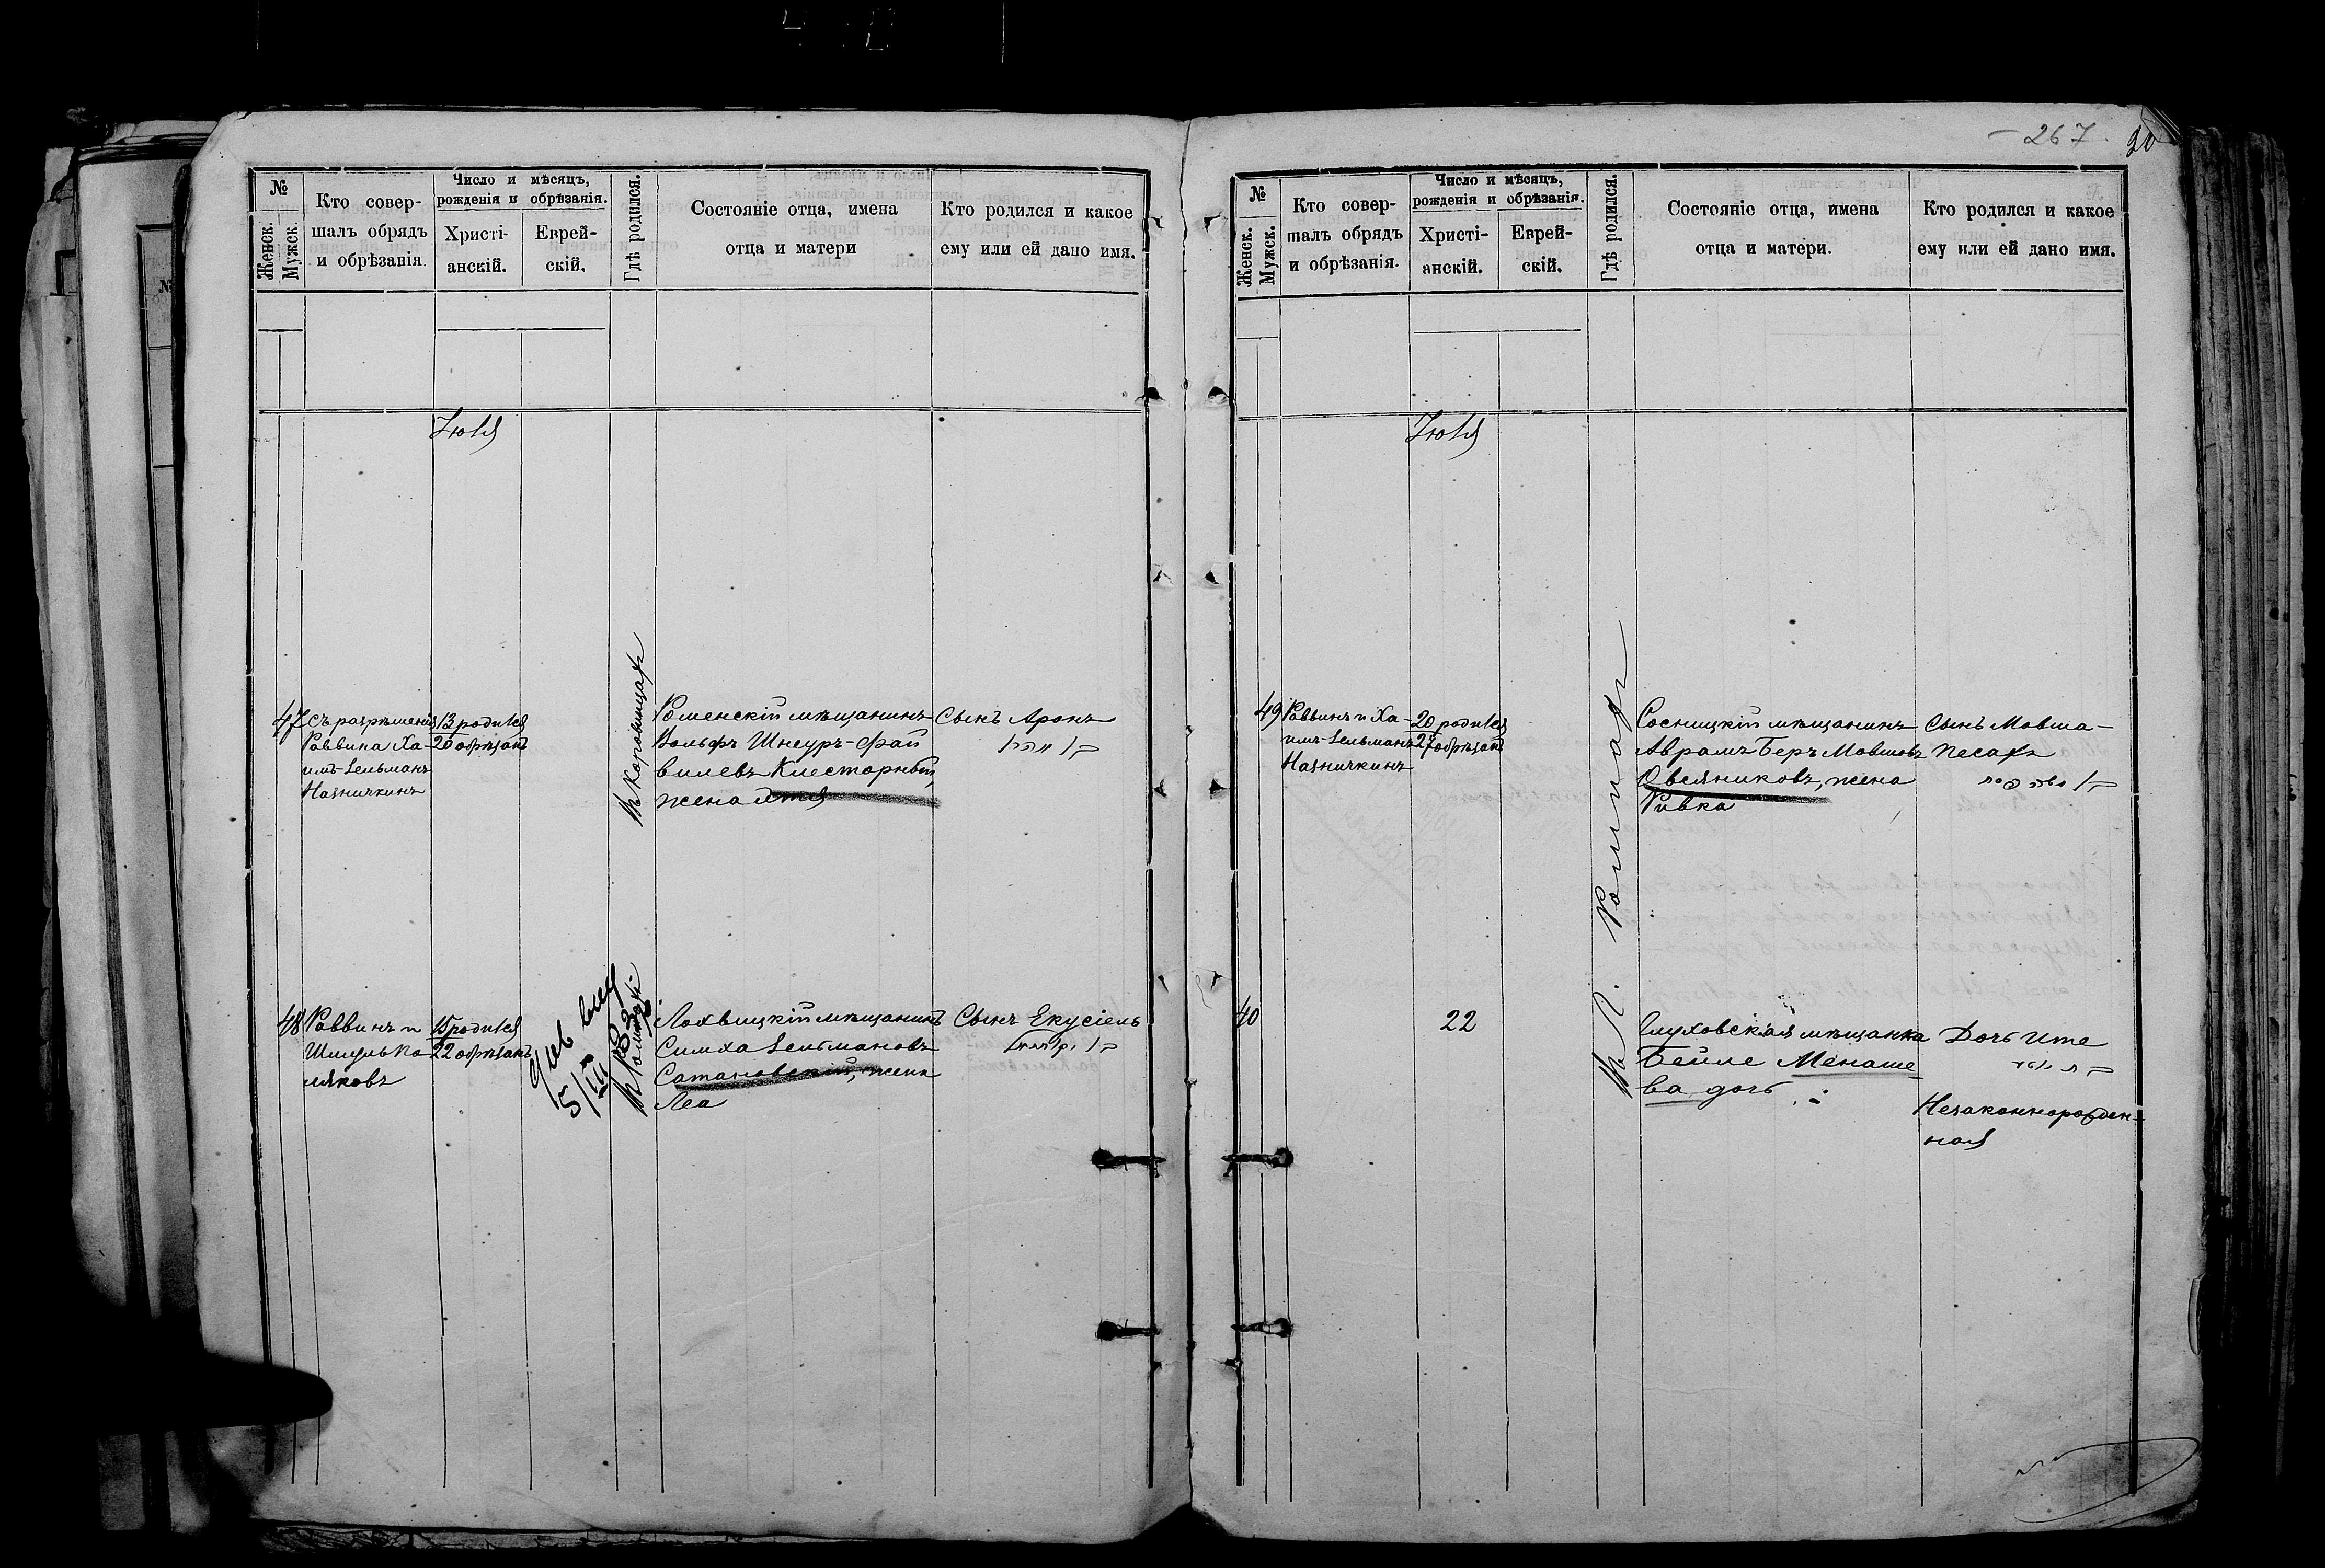 - 267. 30
№
Женск.
Мужск.
Кто совер-
шалъ обрядъ
и обрѣзанія.
Число и мѣсяцъ,
рожденія и обрѣзанія.
Христі-
анскій.
Еврей-
скій.
Гдѣ родился.
Состояніе отца, имена
отца и матери
Кто родился и какое
ему или ей дано имя.
Іюля
47
Съ разрѣшенія
Раввина Ха-
имъ-Зельманъ
Назничкинъ
13 родился
20 обрѣзанъ
въ Коровинцахъ
Роменскій мѣщанинъ
Вольфъ Шнеуръ-Фай
вилевъ Клесторный,
жена
Сынъ Аронъ
48
Раввинъ и
Шмуль По
ляковъ
15 родился
22 обрѣзанъ
5/III
въ Ромнахъ
Лохвицкій мѣщанинъ
Симха Зельмановъ
Сатановскій, жена
Леа
Сынъ Екусіель
№
Женск.
Мужск.
Кто совер-
шалъ обрядъ
и обрѣзанія.
Число и мѣсяцъ,
рожденія и обрѣзанія.
Христі-
анскій.
Еврей-
скій.
Гдѣ родился.
Состояніе отца, имена
отца и матери.
Кто родился и какое
ему или ей дано имя.
Іюля
49
Раввинъ и Ха-
имъ-Зельманъ
Назничкинъ
20 родился
27 обрѣзанъ
въ г. Ромнахъ
Сосницкій мѣщанинъ
Аврамъ Беръ Мовшовъ
Овсяниковъ, жена
Ривка
Сынъ Мовша-
Песахъ
40
22
Глуховская мѣщанка
Бейле Менаше
ва дочь
Дочь Ите
Незаконнорожден-
ная